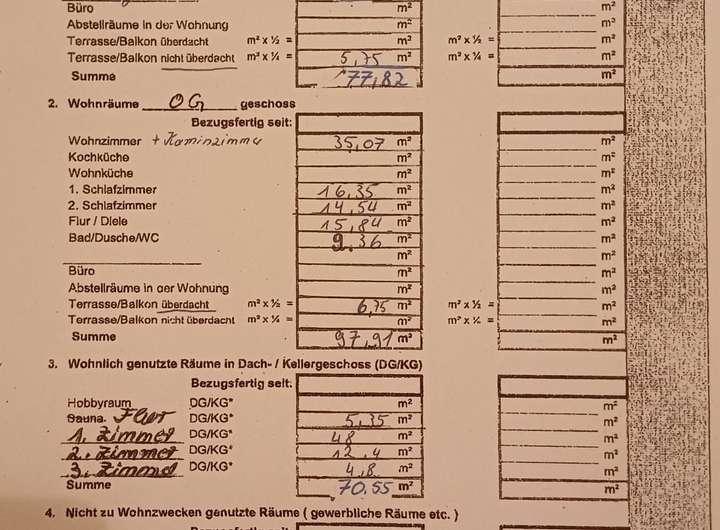 Büro m² m²
Abstellräume in der Wohnung m² m²
Terrasse/Balkon überdacht m² x ½ = m² m² x ½ = m²
Terrasse/Balkon nicht überdacht m² x ¼ = 5,75 m² m² x ¼ = m²
Summe 177,82 m²
2. Wohnräume OG geschoss
Bezugsfertig seit:
Wohnzimmer + Kaminzimmer 35,07 m² m²
Kochküche m² m²
Wohnküche m² m²
1. Schlafzimmer 16,35 m² m²
2. Schlafzimmer 14,54 m² m²
Flur / Diele 15,84 m² m²
Bad/Dusche/WC 9.36 m² m²
m² m²
Büro m² m²
Abstellräume in der Wohnung m² m²
Terrasse/Balkon überdacht m² x ½ = 6,75 m² m² x ½ = m²
Terrasse/Balkon nicht überdacht m² x ¼ = m² m² x ¼ = m²
Summe 97,91 m² m²
3. Wohnlich genutzte Räume in Dach- / Kellergeschoss (DG/KG)
Bezugsfertig seit:
Hobbyraum DG/KG* m² m²
Sauna DG/KG* 5,35 m² m²
1. Zimmer DG/KG* 48 m² m²
2. Zimmer DG/KG* 12,4 m² m²
3. Zimmer DG/KG* 4,8 m² m²
Summe 70.55 m² m²
4. Nicht zu Wohnzwecken genutzte Räume ( gewerbliche Räume etc. )